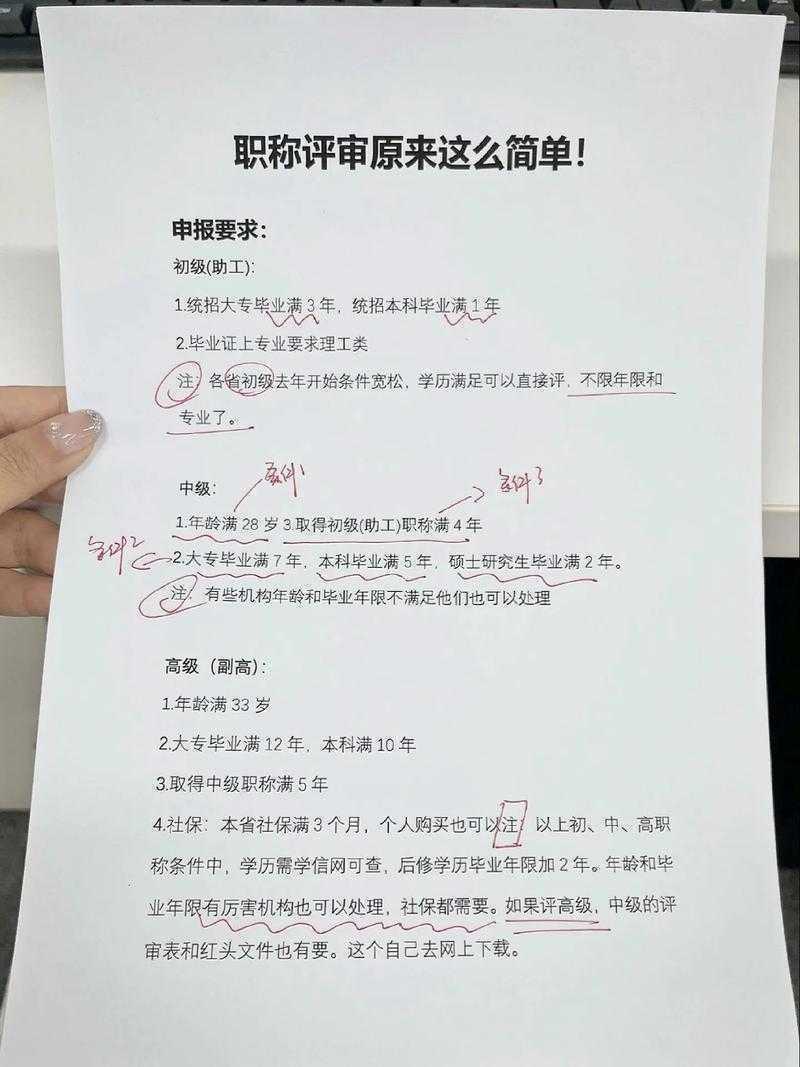 职称评审原来这么简单！
申报要求：
初级(助工)：
1.统招大专毕业满3年，统招本科毕业满1年
2.毕业证上专业要求理工类
注：各省初级去年开始条件宽松，学历满足可以直接评，不限年限和
专业了。
条件1
条件3
中级：
1.年龄满28岁 3.取得初级(助工)职称满4年
条件2
2.大专毕业满7年，本科毕业满5年，硕士研究生毕业满2年。
注：有些机构年龄和毕业年限不满足他们也可以处理
高级（副高）：
1.年龄满33岁
2.大专毕业满12年，本科满10年
3.取得中级职称满5年
4.社保：本省社保满3个月，个人购买也可以注：以上初、中、高职
称条件中，学历需学信网可查，后修学历毕业年限加2年。年龄和毕
业年限有厉害机构也可以处理，社保都需要。如果评高级，中级的评
审表和红头文件也有要。这个自己去网上下载。